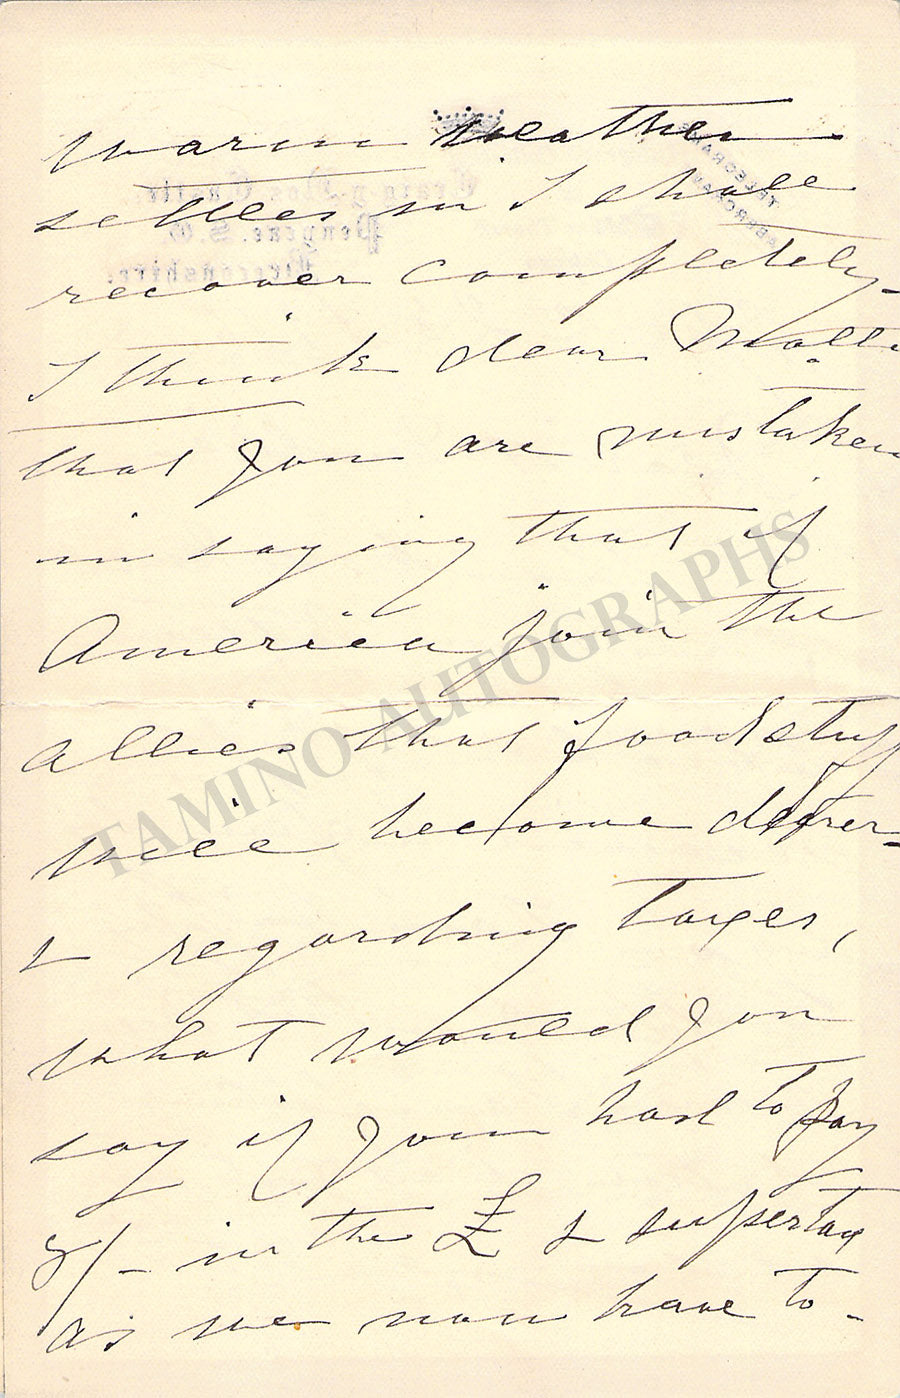 warm weather
settles in I shall
recover completely -
I think dear Malli
that you are mistaken
in saying that if
America join the
allies that foodstuff
will become dearer -
& regarding taxes,
what would you
say if you had to pay
8/- in the £ & supertax
as we now have to -
TAMINO AUTOGRAPHS
Craig y Nos Castle,
Penycae. S.O.
Breconshire.
TELEGRAMS